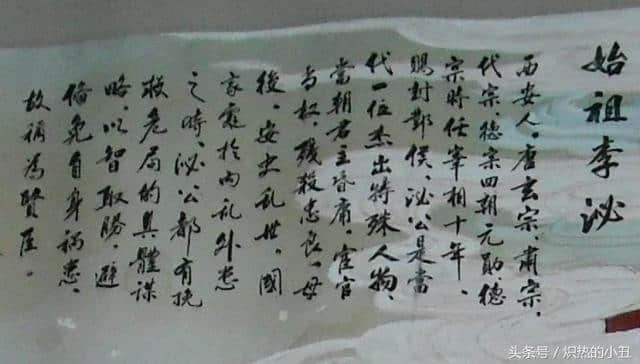 始祖李泌
西安人。唐玄宗、肅宗、
代宗、德宗四朝元勛德
宗時任宰相十年、
賜封鄴侯。泌公是當
代一位杰出特殊人物、
當朝君主昏庸、宦官
当权，残殺忠良、母
後。安史乱世。國
家處於內乱外患
之時、泌公都有挽
救危局的具體謀
略、以智取勝、避
免自身禍患、
故稱為賢臣。
头条号 / 炽热的小丑